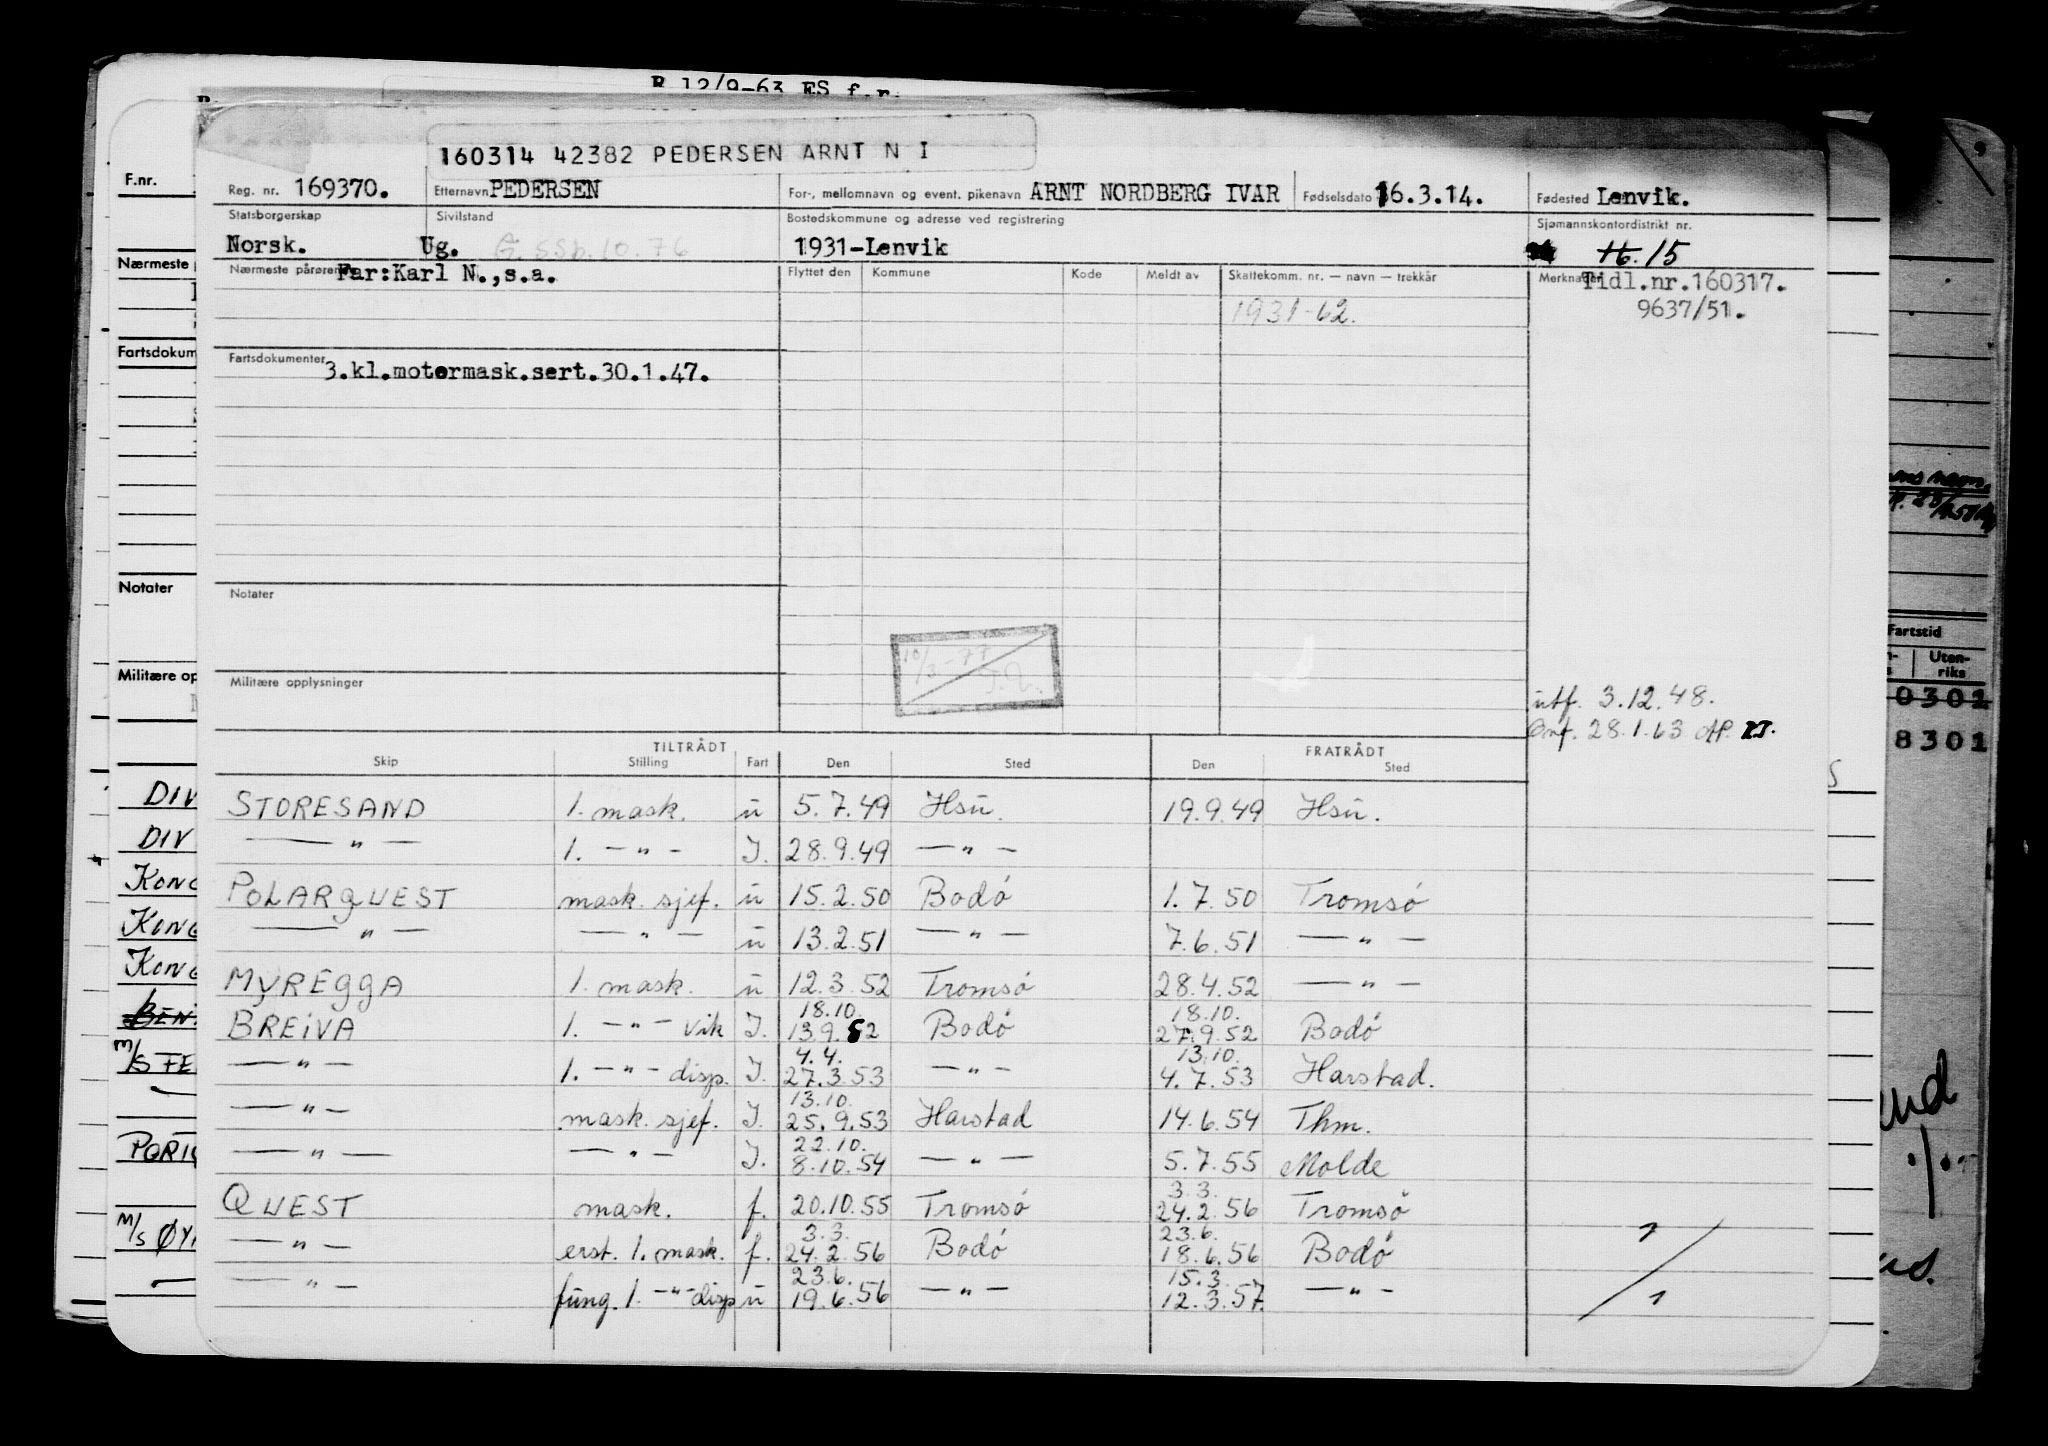 R 12/9-63 ES f.r.
160314 42382 PEDERSEN ARNT N I
F.nr.
Reg. nr. 169370. Etternavn PEDERSEN For-, mellomnavn og event. pikenavn ARNT NORDBERG IVAR Fødselsdato 16.3.14. Fødested Lenvik.
Statsborgerskap Sivilstand Bostedskommune og adresse ved registrering Sjømannskontordistrikt nr.
Norsk. Ug. G. SSb. 10. 76 1931-Lenvik 16. 15
Nærmeste pårørende Far:Karl N.,s.a. Flyttet den Kommune Kode Meldt av Skattekomm. nr. — navn — trekkår Merknader Tidl.nr.160317.
1931-62. 9637/51.
Fartsdokumenter 3.kl.motormask.sert.30.1.47.
Notater
10/3-77
Militære opplysninger
utf. 3.12.48.
Omf. 28.1.63 AP.
TILTRÅDT FRATRÅDT
Skip Stilling Fart Den Sted Den Sted
STORESAND 1. mask. u 5.7.49 Hsu. 19.9.49 Hsu.
— " — 1. — " — I. 28.9.49 — " —
POLARQUEST mask. sjef. u 15.2.50 Bodö 1.7.50 Tromsö
— " — — " — u 13.2.51 — " — 7.6.51 — " —
MYREGGA 1. mask. u 12.3.52 Tromsö 28.4.52 — " —
18.10. 18.10.
BREIVA 1. — " — vik I. 13.9.52 Bodö 27.9.52 Bodö
4.4. 13.10.
— " — 1. — " — disp. I. 27.3.53 — " — 4.7.53 Harstad.
13.10.
— " — mask. sjef. I. 25.9.53 Harstad 14.6.54 Thm.
22.10.
— " — — " — I. 8.10.54 — " — 5.7.55 Molde
3.3.
QUEST mask. f. 20.10.55 Tromsö 24.2.56 Tromsö
3.3. 23.6.
— " — erst. 1. mask. f. 24.2.56 Bodö 18.6.56 Bodö
23.6. 15.3.
— " — fung. 1. — " — disp u 19.6.56 — " — 12.3.57. — " —
Nærmeste
Fartsdokum
Notater
Militære op
DIV
DIV
KONG
KONG
KONG
BEN
M/S FE
M/S ØY
Fartstid
Uten-
riks
0301
8301